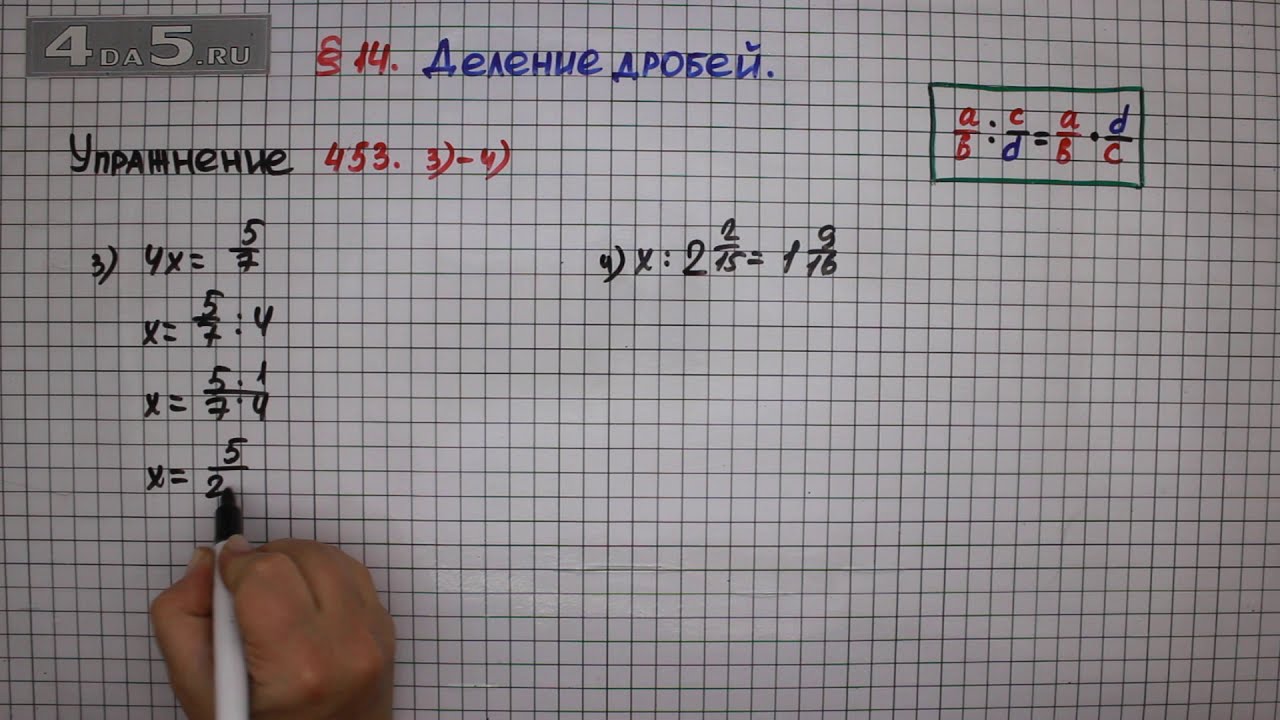 4DA5.RU
§ 14. Деление дробей.
a/b : c/d = a/b · d/c
Упражнение 453. 3)-4)
3) 4x = 5/7
x = 5/7 : 4
x = 5·1/7·4
x = 5/2
4) x : 2 2/15 = 1 9/16